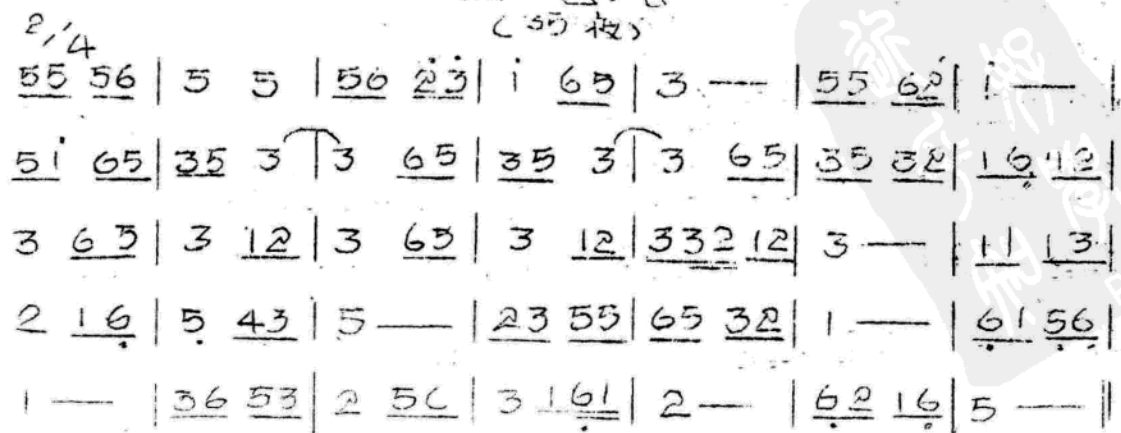 (35板)
2/4
55 56 | 5 5 | 56 2̇3̇ | i̇ 65 | 3 — | 55 62̇ | i̇ — |
51̇ 65 | 35 3 | 3 65 | 35 3 | 3 65 | 35 32 | 16̣ 12 |
3 65 | 3 12 | 3 65 | 3 12 | 332 12 | 3 — | 11 13 |
2 16̣ | 5̣ 43 | 5 — | 23 55 | 65 32 | 1 — | 6̣1 5̣6̣ |
1 — | 36 53 | 2 56 | 3 16̣1 | 2 — | 6̣2 16̣ | 5 — ‖